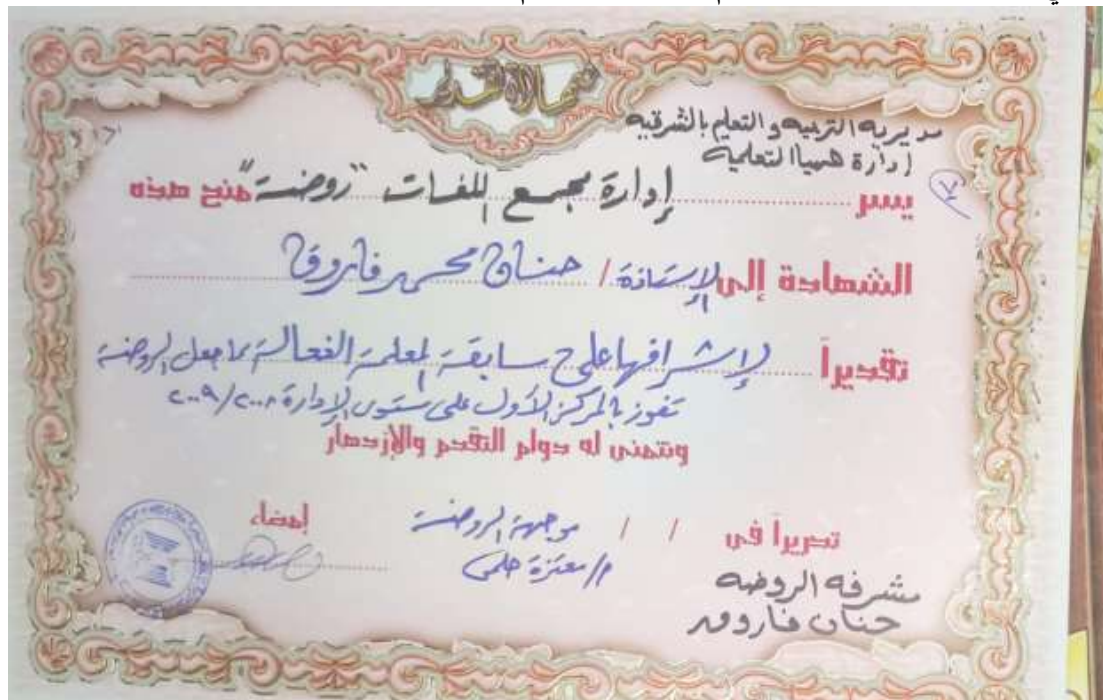 شهادة تقدير
مديريه التربيه والتعليم بالشرقيه
إدارة ههيا التعلميه
يسر إدارة مجمع اللغات "روضة" منح هذه
الشهادة إلى الأستاذة / حنان محمد فاروق
تقديراً لإشرافها على مسابقة المعلمة الفعالة مما جعل الروضة
تفوز بالمركز الأول على مستوى الإدارة ٢٠٠٨/٢٠٠٩
ونتمنى له دوام التقدم والإزدهار
تحريراً فى / / موجهة الروضة إمضاء
م/ معتزة حلمى
مشرفه الروضه
حنان فاروق